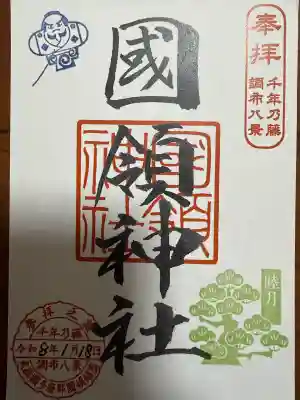 奉拝
千年乃藤
調布八景
國領神社
國領
神社
睦月
参拝之証
千年乃藤
令和8年1月18日
調布八景